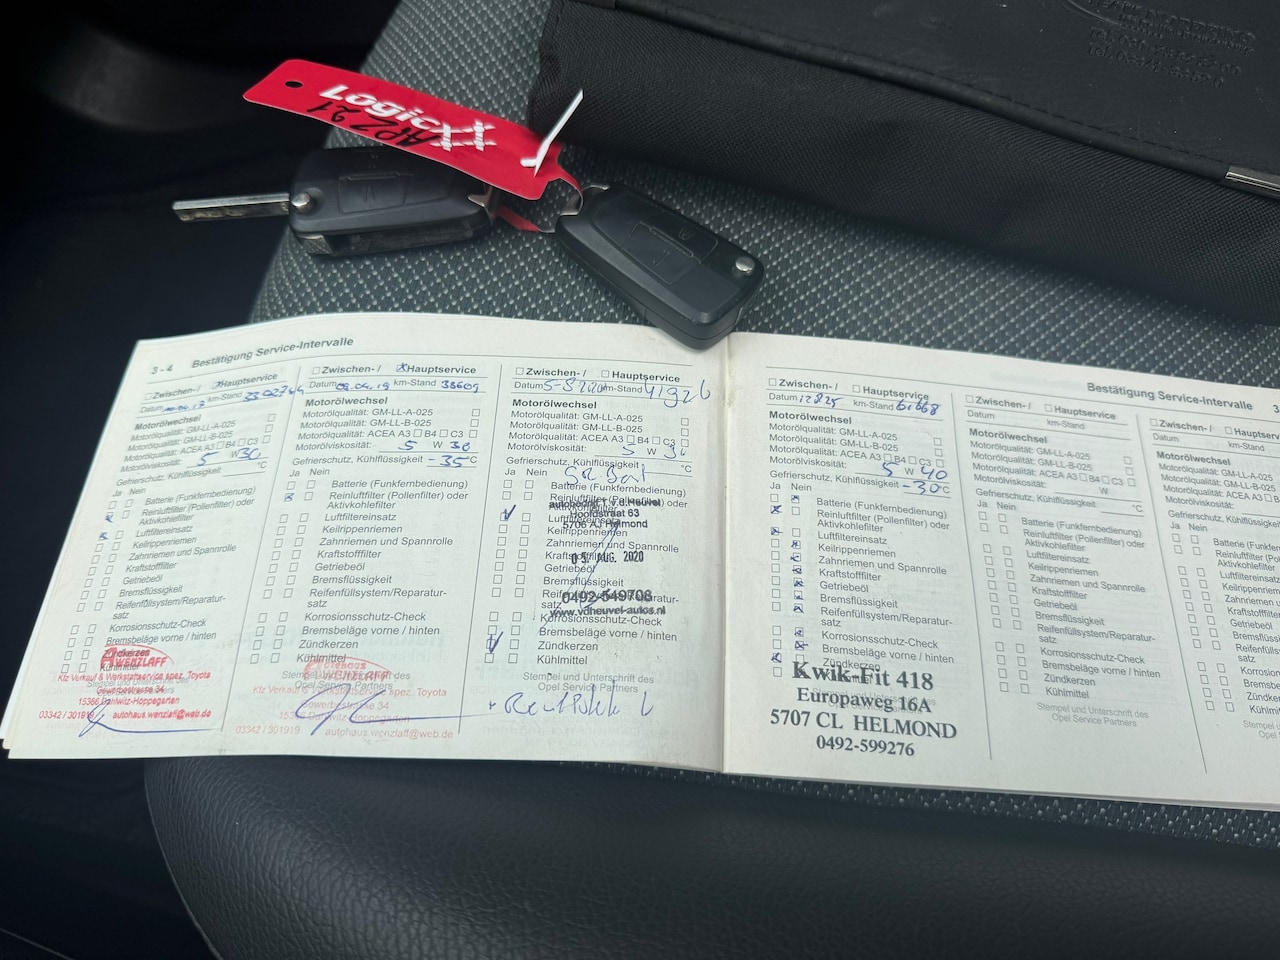 Logicx
3 - 4 Bestätigung Service-Intervalle
☐ Zwischen- / ☒ Hauptservice
Datum km-Stand
Motorölwechsel
Motorölqualität: GM-LL-A-025 ☐
GM-LL-B-025 ☐
Motorölqualität: ACEA A3 ☐ B4 ☐ C3 ☐
Motorölviskosität: 5 W 30
Gefrierschutz, Kühlflüssigkeit °C
Ja Nein
Batterie (Funkfernbedienung)
Reinluftfilter (Pollenfilter) oder
Aktivkohlefilter
Luftfiltereinsatz
Keilrippenriemen
Zahnriemen und Spannrolle
Kraftstofffilter
Getriebeöl
Bremsflüssigkeit
Reifenfüllsystem/Reparatur-
satz
Korrosionsschutz-Check
Bremsbeläge vorne / hinten
Zündkerzen
Kühlmittel
WENZLAFF
Kfz Verkauf & Werkstattservice spez. Toyota
Gewerbestrasse 34
15366 Dahlwitz-Hoppegarten
03342 / 301919 autohaus.wenzlaff@web.de
☐ Zwischen- / ☒ Hauptservice
Datum 09.04.19 km-Stand 38609
Motorölwechsel
Motorölqualität: GM-LL-A-025 ☐
GM-LL-B-025 ☐
Motorölqualität: ACEA A3 ☐ B4 ☐ C3 ☐
Motorölviskosität: 5 W 30
Gefrierschutz, Kühlflüssigkeit -35 °C
Ja Nein
Batterie (Funkfernbedienung)
Reinluftfilter (Pollenfilter) oder
Aktivkohlefilter
Luftfiltereinsatz
Keilrippenriemen
Zahnriemen und Spannrolle
Kraftstofffilter
Getriebeöl
Bremsflüssigkeit
Reifenfüllsystem/Reparatur-
satz
Korrosionsschutz-Check
Bremsbeläge vorne / hinten
Zündkerzen
Kühlmittel
Stempel und Unterschrift des
Opel Service Partners
Kfz Verkauf & Werkstattservice spez. Toyota
Gewerbestrasse 34
03342 / 301919 autohaus.wenzlaff@web.de
☐ Zwischen- / ☐ Hauptservice
Datum 5-8 2020 km-Stand 41926
Motorölwechsel
Motorölqualität: GM-LL-A-025 ☐
GM-LL-B-025 ☐
Motorölqualität: ACEA A3 ☐ B4 ☐ C3 ☐
Motorölviskosität: 5 W 30
Gefrierschutz, Kühlflüssigkeit °C
Ja Nein
Batterie (Funkfernbedienung)
Reinluftfilter (Pollenfilter) oder
Aktivkohlefilter
Luftfiltereinsatz
Keilrippenriemen
Zahnriemen und Spannrolle
Kraftstofffilter
Getriebeöl
Bremsflüssigkeit
Reifenfüllsystem/Reparatur-
satz
Korrosionsschutz-Check
Bremsbeläge vorne / hinten
Zündkerzen
Kühlmittel
v.d. Heuvel
Hoofdstraat 63
5706 AJ Helmond
05. AUG. 2020
0492-549708
www.vdheuvel-autos.nl
Stempel und Unterschrift des
Opel Service Partners
☐ Zwischen- / ☐ Hauptservice
Datum 12825 km-Stand 61668
Motorölwechsel
Motorölqualität: GM-LL-A-025 ☐
GM-LL-B-025 ☐
Motorölqualität: ACEA A3 ☐ B4 ☐ C3 ☐
Motorölviskosität: 5 W 40
Gefrierschutz, Kühlflüssigkeit -30 °C
Ja Nein
Batterie (Funkfernbedienung)
Reinluftfilter (Pollenfilter) oder
Aktivkohlefilter
Luftfiltereinsatz
Keilrippenriemen
Zahnriemen und Spannrolle
Kraftstofffilter
Getriebeöl
Bremsflüssigkeit
Reifenfüllsystem/Reparatur-
satz
Korrosionsschutz-Check
Bremsbeläge vorne / hinten
Zündkerzen
Kwik-Fit 418
Europaweg 16A
5707 CL HELMOND
0492-599276
Bestätigung Service-Intervalle 3
☐ Zwischen- / ☐ Hauptservice
Datum km-Stand
Motorölwechsel
Motorölqualität: GM-LL-A-025 ☐
GM-LL-B-025 ☐
Motorölqualität: ACEA A3 ☐ B4 ☐ C3 ☐
Motorölviskosität: W
Gefrierschutz, Kühlflüssigkeit °C
Ja Nein
Batterie (Funkfernbedienung)
Reinluftfilter (Pollenfilter) oder
Aktivkohlefilter
Luftfiltereinsatz
Keilrippenriemen
Zahnriemen und Spannrolle
Kraftstofffilter
Getriebeöl
Bremsflüssigkeit
Reifenfüllsystem/Reparatur-
satz
Korrosionsschutz-Check
Bremsbeläge vorne / hinten
Zündkerzen
Kühlmittel
Stempel und Unterschrift des
Opel Service Partners
☐ Zwischen- /
Datum km-Stand
Motorölwechsel
Ja Nein